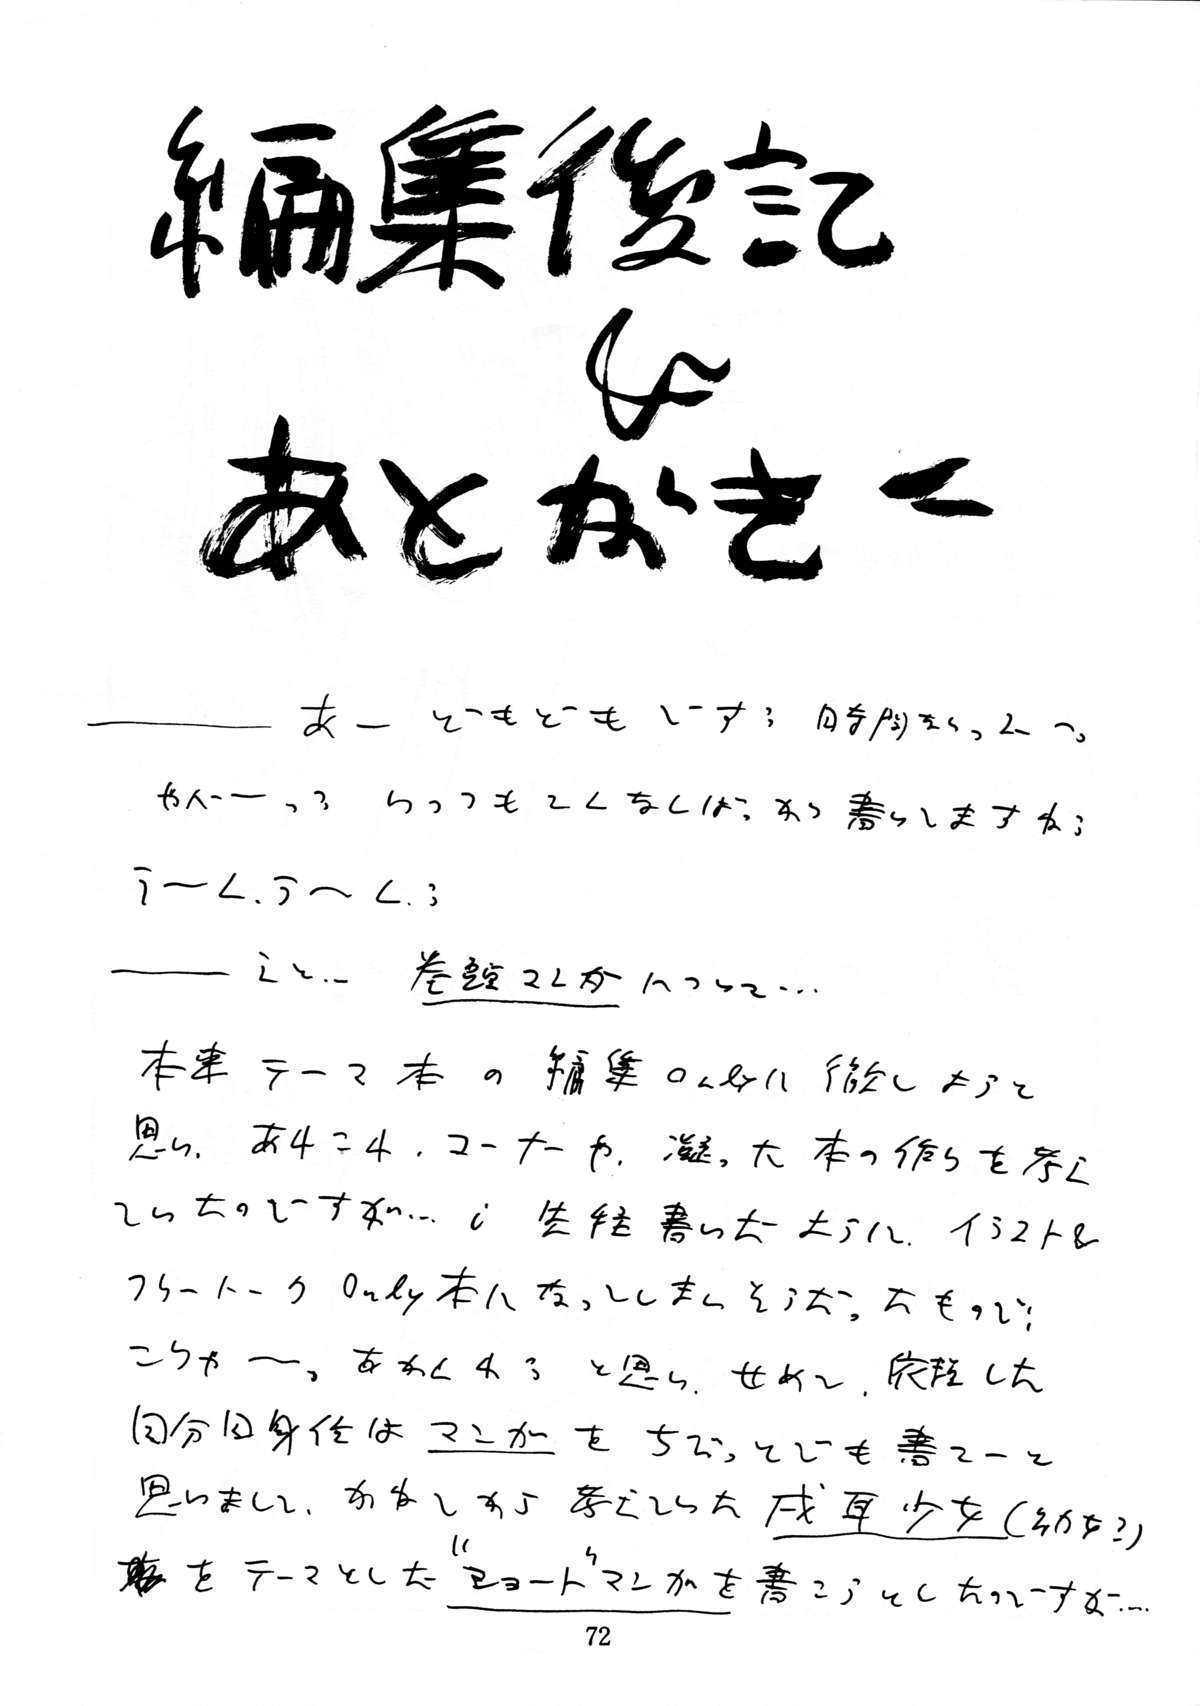 編集後記
&
あとがきー
あー どもどもでーす; 時間をくってーっ。
やべーーっ; らっつもてくなしば; から書らしますね;
う〜ん、う〜ん;
えと… 巻頭マンガについて…
本来 テーマ本の 編集 Onlyに 徹しようと
思い、あれこれ、コーナーや、凝った 本の作りを考え
ていたのですが…; 先程書いたように、イラスト&
フリートーク Only本になってしまいそうだったもので;
こりゃ〜っ。あかんわ; と思い、せめて、依頼した
自分自身位は マンガを ちょっとでも 書てーと
思いまして、かねてから 考えていた 戌耳少女(幼女?)
をテーマとした "ショート"マンガを書こうとしたのですが…
72